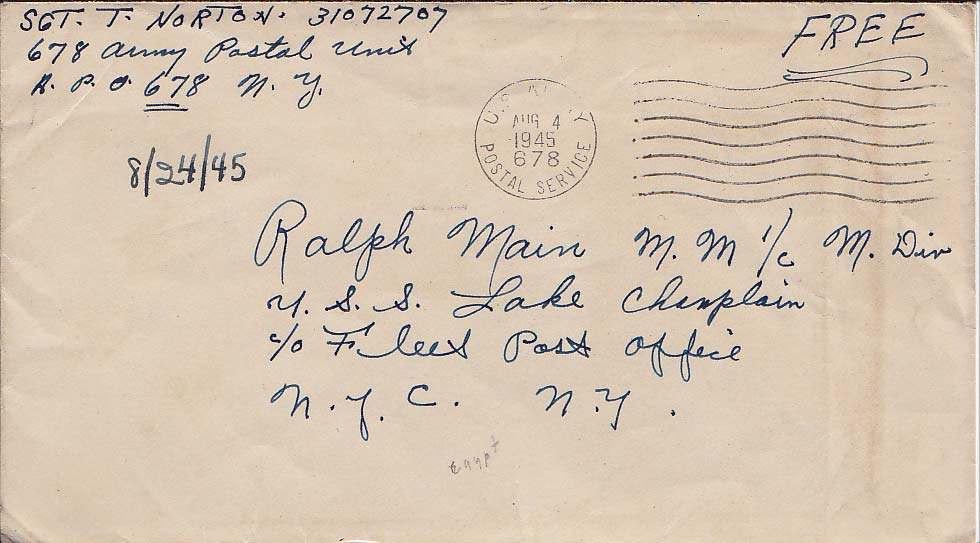 SGT. T. NORTON. 31072707
678 Army Postal Unit
A. P. O. 678 N. Y.
FREE
U.S. ARMY
AUG 4
1945
678
POSTAL SERVICE
8/24/45
Ralph Main M.M 1/c M. Div
U. S. S. Lake Champlain
c/o Fleet Post Office
N. Y. C. N. Y.
Egypt